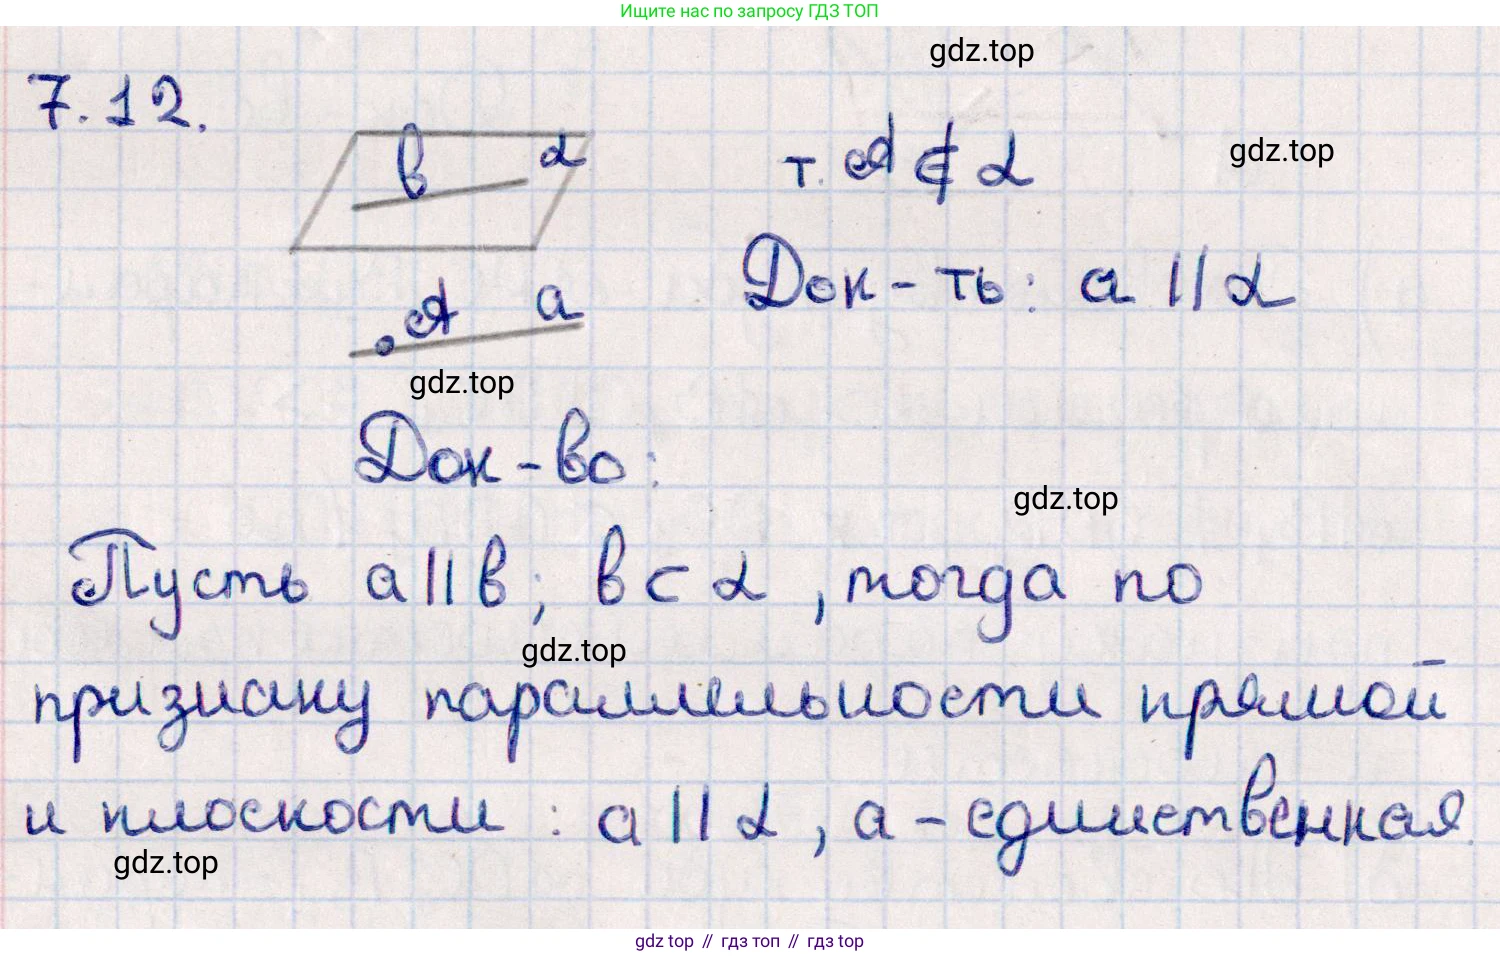 Ищите нас по запросу ГДЗ ТОП
gdz.top
7.12.
в α
т. A ∉ α
gdz.top
Док-ть: a || α
A a
gdz.top
Док-во:
gdz.top
Пусть a || в; в ⊂ α, тогда по
gdz.top
признаку параллельности прямой
и плоскости: a || α, a - единственная.
gdz.top
gdz top // гдз топ // гдз top